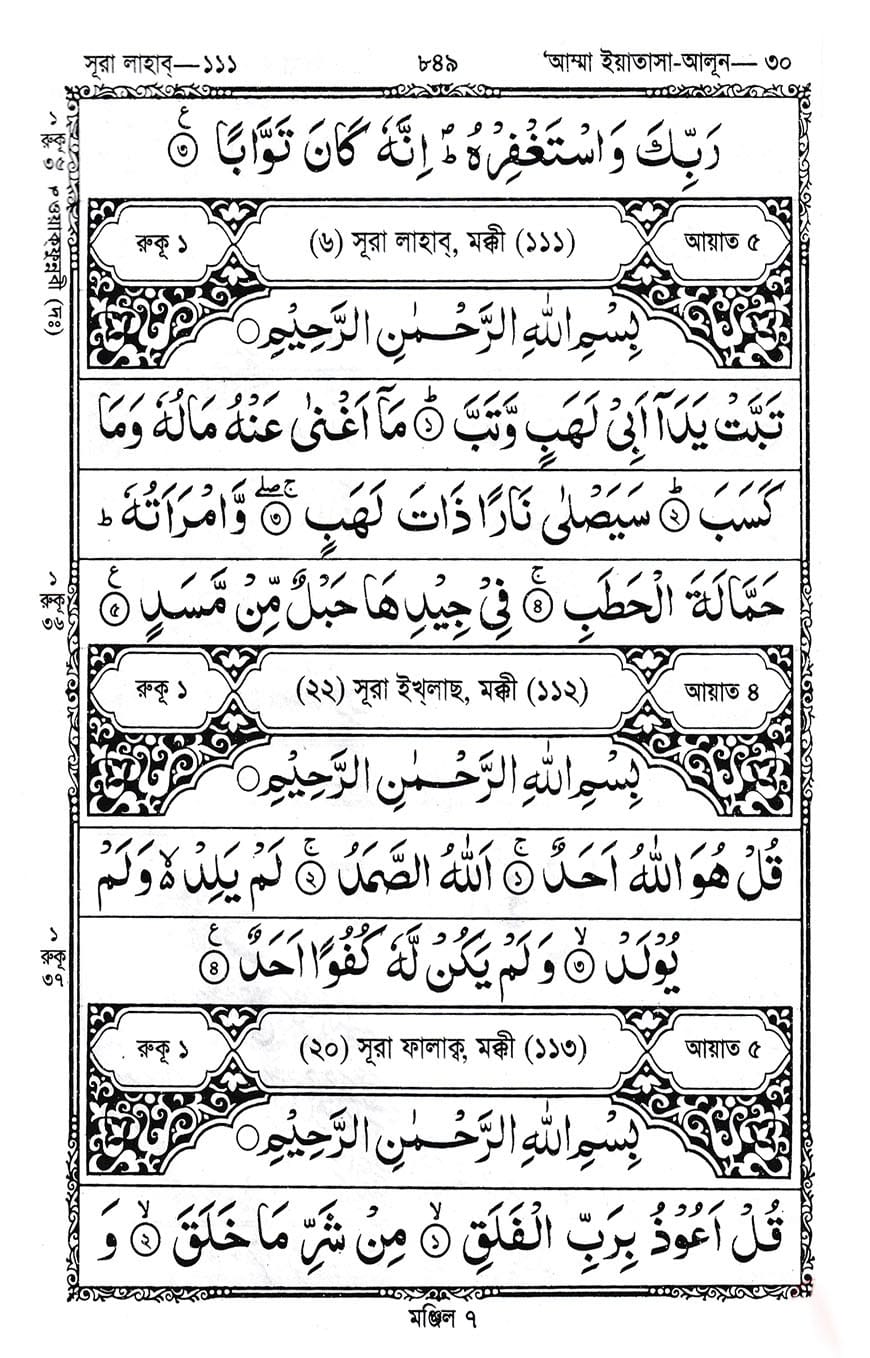 সূরা লাহাব্—১১১ ৮৪৯ 'আম্মা ইয়াতাসা-আলূন— ৩০
رَبِّكَ وَاسْتَغْفِرْهُ ؕ اِنَّهٗ كَانَ تَوَّابًا ۝৩ ع
১
রুকূ
৩৫
রুকূ ১ (৬) সূরা লাহাব্, মক্কী (১১১) আয়াত ৫
بِسْمِ اللّٰهِ الرَّحْمٰنِ الرَّحِيْمِ ۝
تَبَّتْ يَدَاۤ اَبِىْ لَهَبٍ وَّتَبَّ ؕ ۝১ مَاۤ اَغْنٰى عَنْهُ مَالُهٗ وَمَا
كَسَبَ ؕ ۝২ سَيَصْلٰى نَارًا ذَاتَ لَهَبٍ ۚۖ ۝৩ وَّامْرَاَتُهٗ ؕ
حَمَّالَةَ الْحَطَبِ ۚ ۝৪ فِىْ جِيْدِهَا حَبْلٌ مِّنْ مَّسَدٍ ۝৫ ع
১
রুকূ
৩৬
রুকূ ১ (২২) সূরা ইখ্লাছ, মক্কী (১১২) আয়াত ৪
بِسْمِ اللّٰهِ الرَّحْمٰنِ الرَّحِيْمِ ۝
قُلْ هُوَ اللّٰهُ اَحَدٌ ۚ ۝১ اَللّٰهُ الصَّمَدُ ۚ ۝২ لَمْ يَلِدْ ۙ۬ وَلَمْ
يُوْلَدْ ۙ ۝৩ وَلَمْ يَكُنْ لَّهٗ كُفُوًا اَحَدٌ ۝৪ ع
১
রুকূ
৩৭
রুকূ ১ (২০) সূরা ফালাক্ব, মক্কী (১১৩) আয়াত ৫
بِسْمِ اللّٰهِ الرَّحْمٰنِ الرَّحِيْمِ ۝
قُلْ اَعُوْذُ بِرَبِّ الْفَلَقِ ۙ ۝১ مِنْ شَرِّ مَا خَلَقَ ۙ ۝২ وَ
মঞ্জিল ৭